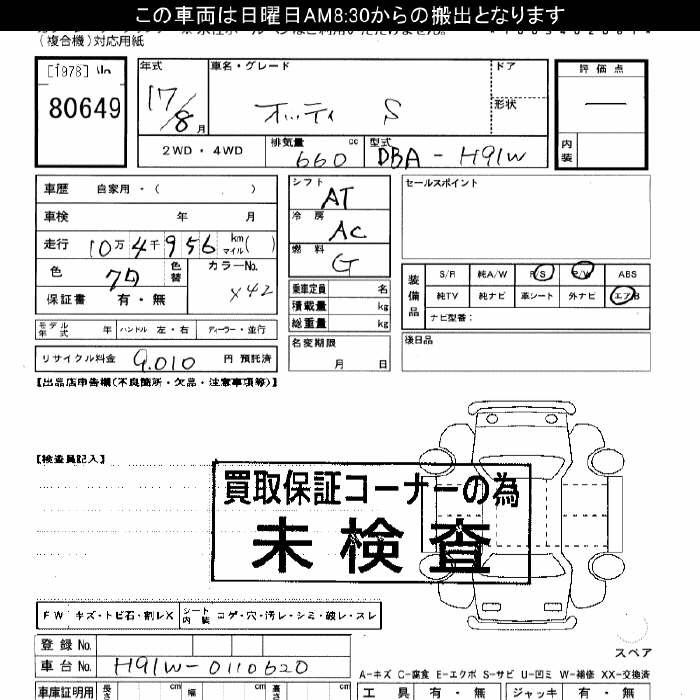 この車両は日曜日AM8:30からの搬出となります
(複合機)対応用紙
80649
年式
17/8月
車名・グレード
オッティ S
ドア
形状
評価点
—
内装
2WD・4WD
排気量 660 cc
型式 DBA-H91W
車歴 自家用・( )
車検 年 月
走行 10万4千956 km マイル( )
色
色替
カラーNo. X42
保証書 有・無
モデル年式 年 ハンドル 左・右 ディーラー・並行
リサイクル料金 9.010 円 預託済
シフト AT
冷房 AC
燃料 G
乗車定員 名
積載量 kg
総重量 kg
名変期限
月 日
セールスポイント
装備品
S/R 純A/W P/S P/W ABS
純TV 純ナビ 革シート 外ナビ エアB
ナビ型番:
後日品
【出品店申告欄(不良箇所・欠品・注意事項等)】
【検査員記入】
買取保証コーナーの為
未検査
FW キズ・トビ石・割レX
シート内装 コゲ・穴・汚レ・シミ・破レ・スレ
スペア
登録No.
車台No. H91W-0110620
A-キズ C-腐食 E-エクボ S-サビ U-凹ミ W-補修 XX-交換済
車庫証明用 長さ cm 幅 cm 高さ cm
工具 有・無 ジャッキ 有・無